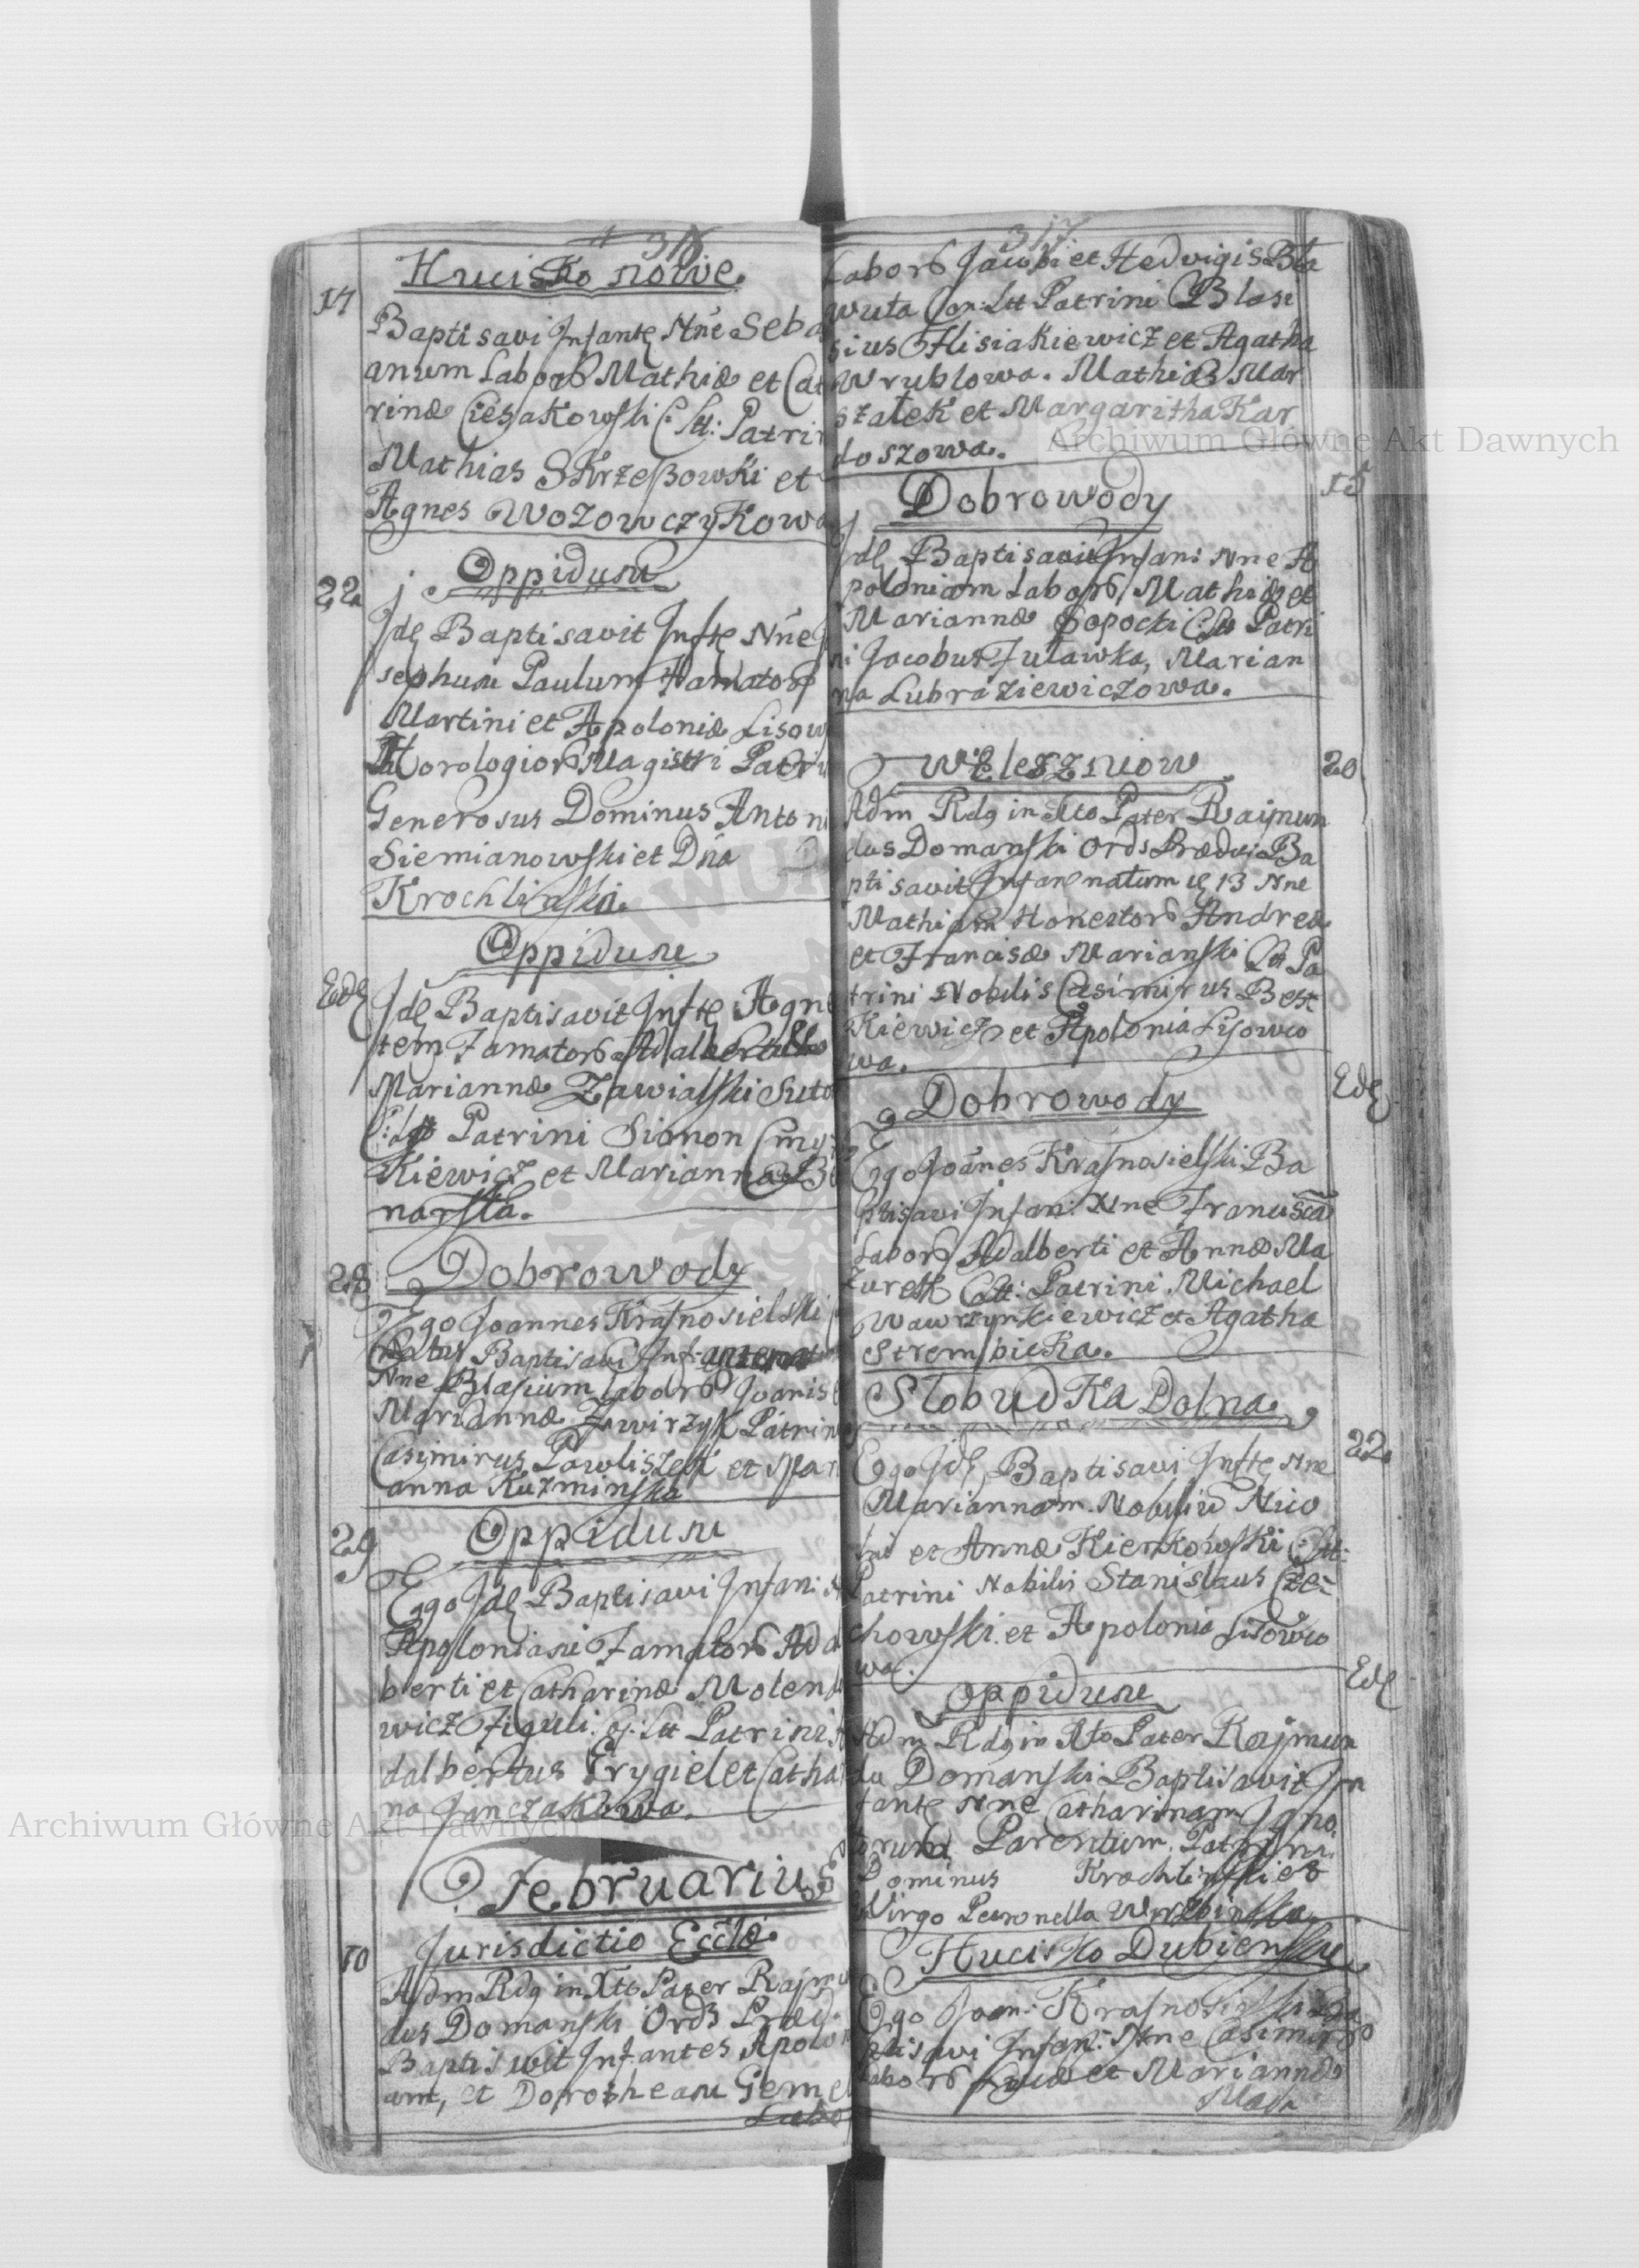 316
Hucisko nowe.
17
Baptisavi Infantę Nñe Seba
anum Laborũ Mathiæ et Cat
rinæ Ciesakowski C: Ltt: Patrin
Mathias Skrzeszowski et
Agnes Wozowczykowa
Oppidum
22
Idę Baptisavit Inftę Nñe
sephum Paulum Famatorũ
Martini et Apoloniæ Lisow
Horologiorũ Magistri Patrin
Generosus Dominus Anton
Siemianowski et Dña
Krochlińska.
Oppidum
Edę
Idę Baptisavit Inftę Agne
tem Famatorũ Adalberti
Mariannæ Zawialski Suto
C: Ltt Patrini Simon
Kiewicz et Marianna
narska.
Dobrowody
28
Ego Joannes Krasnosielski
Baptisavi Inf:
Nne Blasium Laborũ Joanis
Mariannæ Zawirzyk Patrin
Casimirus Pawliszek et Mar
anna Kuzminska
Oppidum
29
Ego Idę Baptisavi Infan:
Apoloniam Famatorũ Ada
berti et Catharinæ Molend
wicz Figuli. Cj. Ltt Patrini
dalbertus Frygiel et Catha
na Janczakowa.
Februarius
Jurisdictio Ecclæ
10
Adm Rdg in Xto Pater Rajmu
dus Domanski Ords Præd:
Baptisavit Infantes Apolon
am, et Dorotheam Geme
Labo
317
Laborũ Jacobi et Hedvigis Bla
wuta Con: Ltt Patrini Blasi
sius Flisiakiewicz et Agatha
Wrublowa. Mathias Mar
szalek et Margaritha Kar
doszowa.
Dobrowody
15
Idę Baptisavit Infan: Nne A
poloniam Laborũ Mathiæ et
Mariannæ Sopocki C Ltt Patri
ni Jacobus Fulawka, Marian
na Lubraziewiczowa.
Welesniow
20
Adm Rdg in Xto Pater Rajmun
dus Domanski Ords Præd: Ba
ptisavit Infan natum 13 Nne
Mathiam Honestorũ Andreæ
et Francisæ Marianski C Ltt Pa
trini Nobilis Casimirus Best
Kiewicz et Apolonia Lisowco
wa.
Dobrowody
Edę
Ego Joãnes Krasnosielski Ba
ptisavi Infan: Nne Francisca
Laborũ Adalberti et Annæ Ma
zurek C Ltt: Patrini Michael
Wawrzynkiewicz et Agatha
Strembicka.
Slobudka Dolna
22
Ego Idę Baptisavi Inftę Nne
Mariannam Nobiliũ Nico
lai et Annæ Kierkowski C: Ltt:
Patrini Nobilis Stanislaus Cze:
chowski et Apolonia Lisowco
wa.
Oppidum
Edę
Adm Rdg in Xto Pater Rajmun
du Domanski Baptisavit In
fantę Nne Catharinam Igno
torum Parentum. Patrini
Dominus Krochlinski et
Virgo Petronella Wierzbinska.
Hucisko Dubienskie
Ego Joan: Krasnosielski Ba
ptisavi Infan: Nne Casimirũ
Laborũ Lucæ et Mariannæ
Mada
Archiwum Główne Akt Dawnych
Archiwum Główne Akt Dawnych